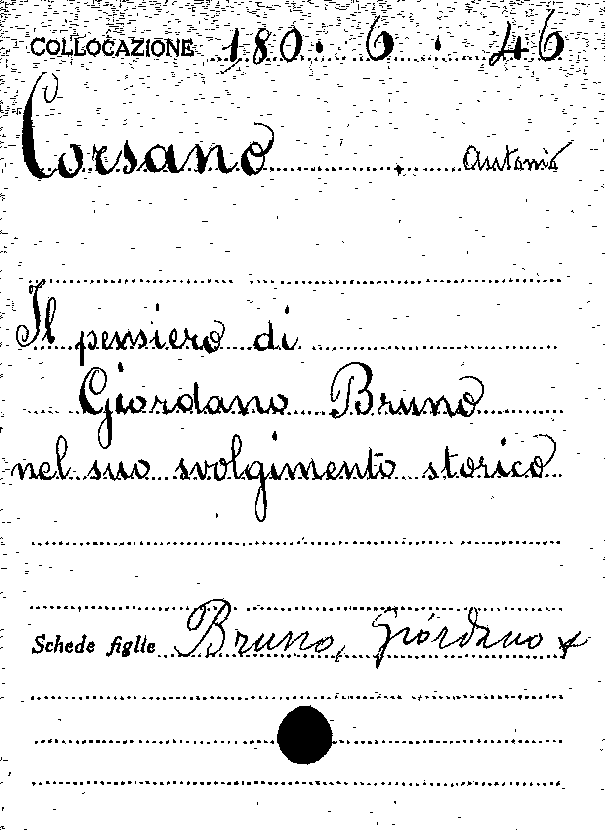 COLLOCAZIONE 180. 6. 46
Corsano . Antonio
Il pensiero di
Giordano Bruno
nel suo svolgimento storico
Schede figlie Bruno, Giordano x